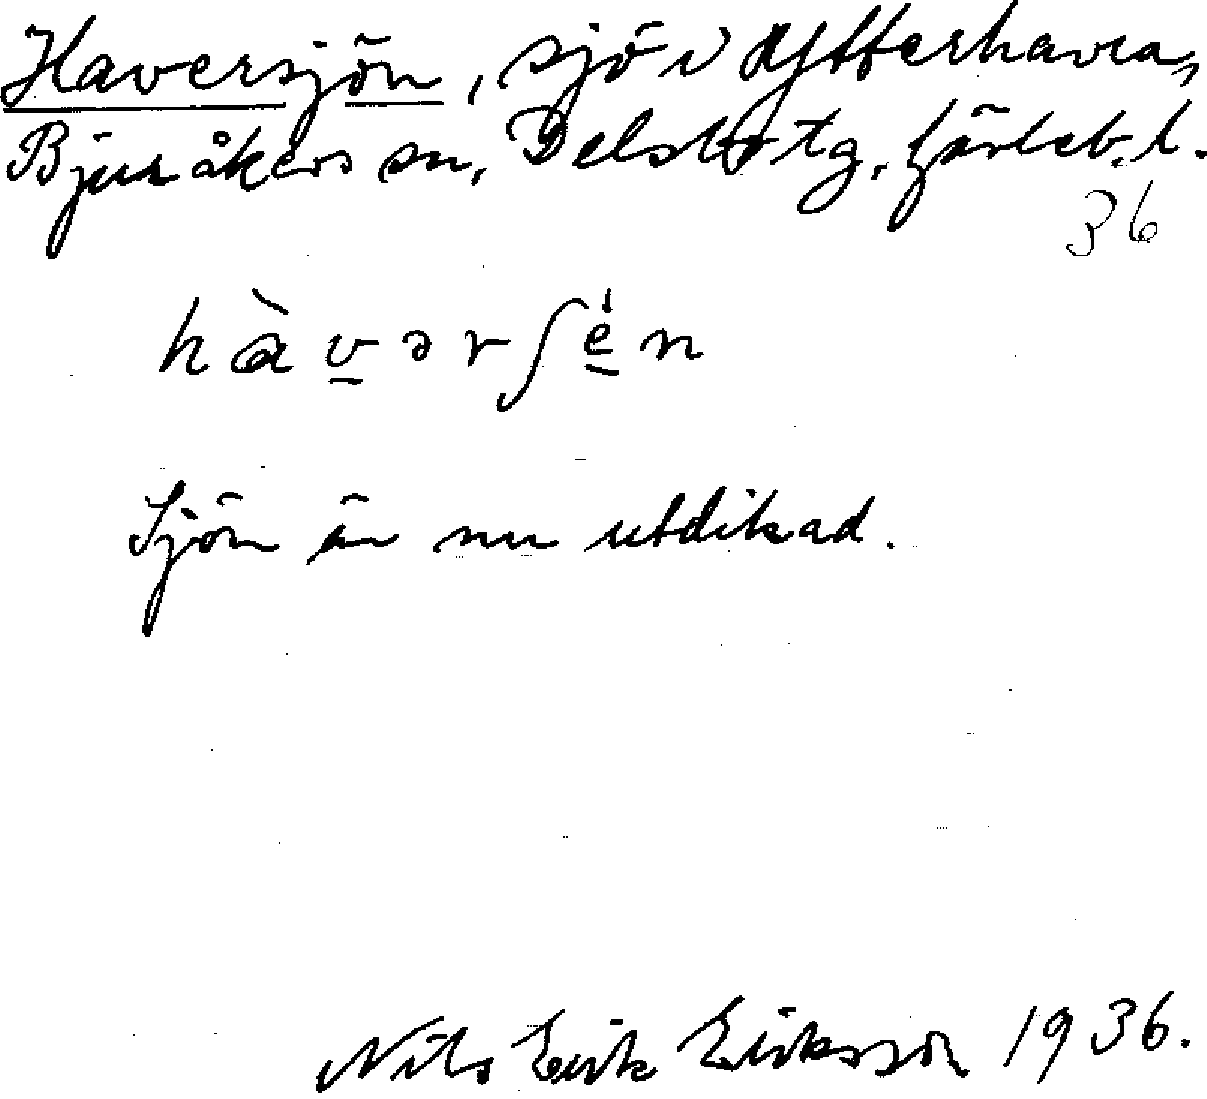 Haversjön, sjö i Ytterhavra,
Bjuråkers sn, Delsbo tg, Gävleb. l.
36
hàvərʃén
Sjön är nu utdikad.
Nils Erik Eriksson 1936.